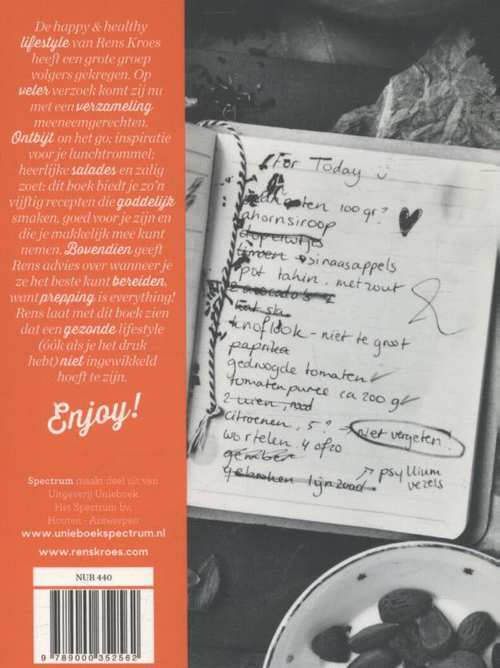 De happy & healthy
lifestyle van Rens Kroes
heeft een grote groep
volgers gekregen. Op
veler verzoek komt zij nu
met een verzameling
meeneemgerechten.
Ontbijt on het go; inspiratie
voor je lunchtrommel;
heerlijke salades en zalig
zoet: dit boek biedt je zo'n
vijftig recepten die goddelijk
smaken, goed voor je zijn en
die je makkelijk mee kunt
nemen. Bovendien geeft
Rens advies over wanneer je
ze het beste kunt bereiden,
want prepping is everything!
Rens laat met dit boek zien
dat een gezonde lifestyle
(óók als je het druk
hebt) niet ingewikkeld
hoeft te zijn.
Enjoy!
Spectrum maakt deel uit van
Uitgeverij Unieboek
Het Spectrum bv,
Houten - Antwerpen
www.unieboekspectrum.nl
www.renskroes.com
NUR 440
9 789000 352562
For Today
100 gr?
ahornsiroop
doperwtjes
limoen → sinaasappels
pot tahin, met zout
2 avocado's
knoflook - niet te groot
paprika
gedroogde tomaten
tomatenpuree ca 200 g
2 uien, rood
citroenen, 5? → niet vergeten!
wortelen, 4 of zo
gember
→ psyllium
vezels
gebroken lijnzaad